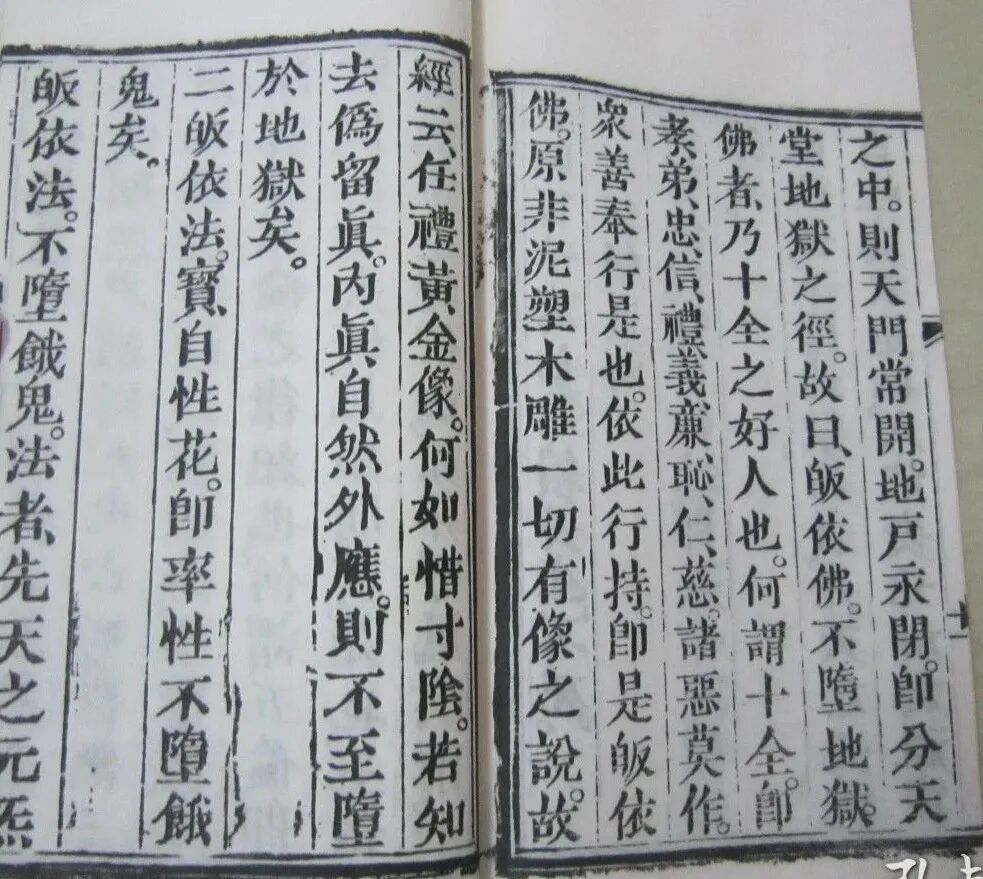 之中。則天門常開。地戸永閉。卽分天
堂地獄之徑。故曰、皈依佛。不墮地獄。
佛者、乃十全之好人也。何謂十全。卽
孝、弟、忠、信、禮、義、廉、恥、仁、慈。諸惡莫作。
衆善奉行是也。依此行持。卽是皈依
佛。原非泥塑木雕一切有像之說。故
經云、任禮黃金像。何如惜寸陰。若知
去僞留眞。內眞自然外應。則不至墮
於地獄矣。
二皈依法。寶、自性花。卽率性不墮餓
鬼矣。
皈依法。不墮餓鬼。法者、先天之元炁
十一